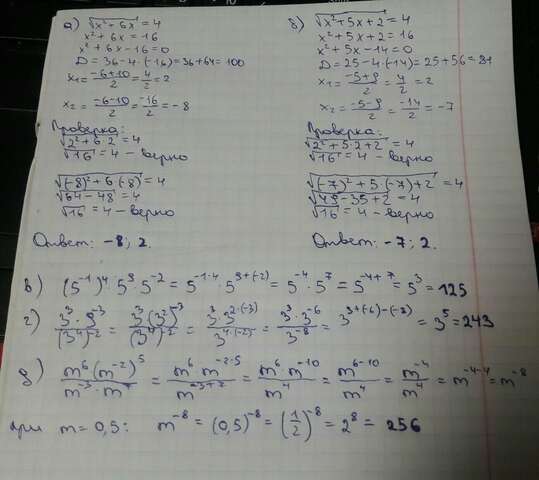 а) √(x²+6x) = 4
x²+6x=16
x²+6x-16=0
D=36-4·(-16)=36+64=100
x₁=(-6+10)/2=4/2=2
x₂=(-6-10)/2=-16/2=-8
Проверка:
√(2²+6·2)=4
√16=4-верно
√((-8)²+6·(-8))=4
√(64-48)=4
√16=4-верно
Ответ: -8; 2.
б) √(x²+5x+2)=4
x²+5x+2=16
x²+5x-14=0
D=25-4·(-14)=25+56=81
x₁=(-5+9)/2=4/2=2
x₂=(-5-9)/2=-14/2=-7
Проверка:
√(2²+5·2+2)=4
√16=4-верно
√((-7)²+5·(-7)+2)=4
√(49-35+2)=4
√16=4-верно
Ответ: -7; 2.
в) (5⁻¹)⁴·5⁹·5⁻²=5^(-1·4)·5^(9+(-2))=5⁻⁴·5⁷=5^(-4+7)=5³=125
г) (3³·9⁻³)/(3⁴)⁻²=(3³·(3²)⁻³)/(3⁴)⁻²=(3³·3^(2·(-3)))/3^(4·(-2))=(3³·3⁻⁶)/3⁻⁸=3^(3+(-6)-(-8))=3⁵=243
д) (m⁶(m⁻²)⁵)/(m⁻³·m⁷)=(m⁶·m^(-2·5))/m^(-3+7)=(m⁶·m⁻¹⁰)/m⁴=m^(6-10)/m⁴=m⁻⁴/m⁴=m^(-4-4)=m⁻⁸
при m=0,5: m⁻⁸=(0,5)⁻⁸=(1/2)⁻⁸=2⁸=256